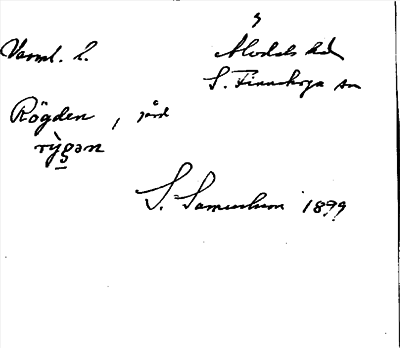 Värml. l.
Älvdals hd
S. Finnskoga sn
Rögden, gård
rỳgən
S. Samuelsson 1899